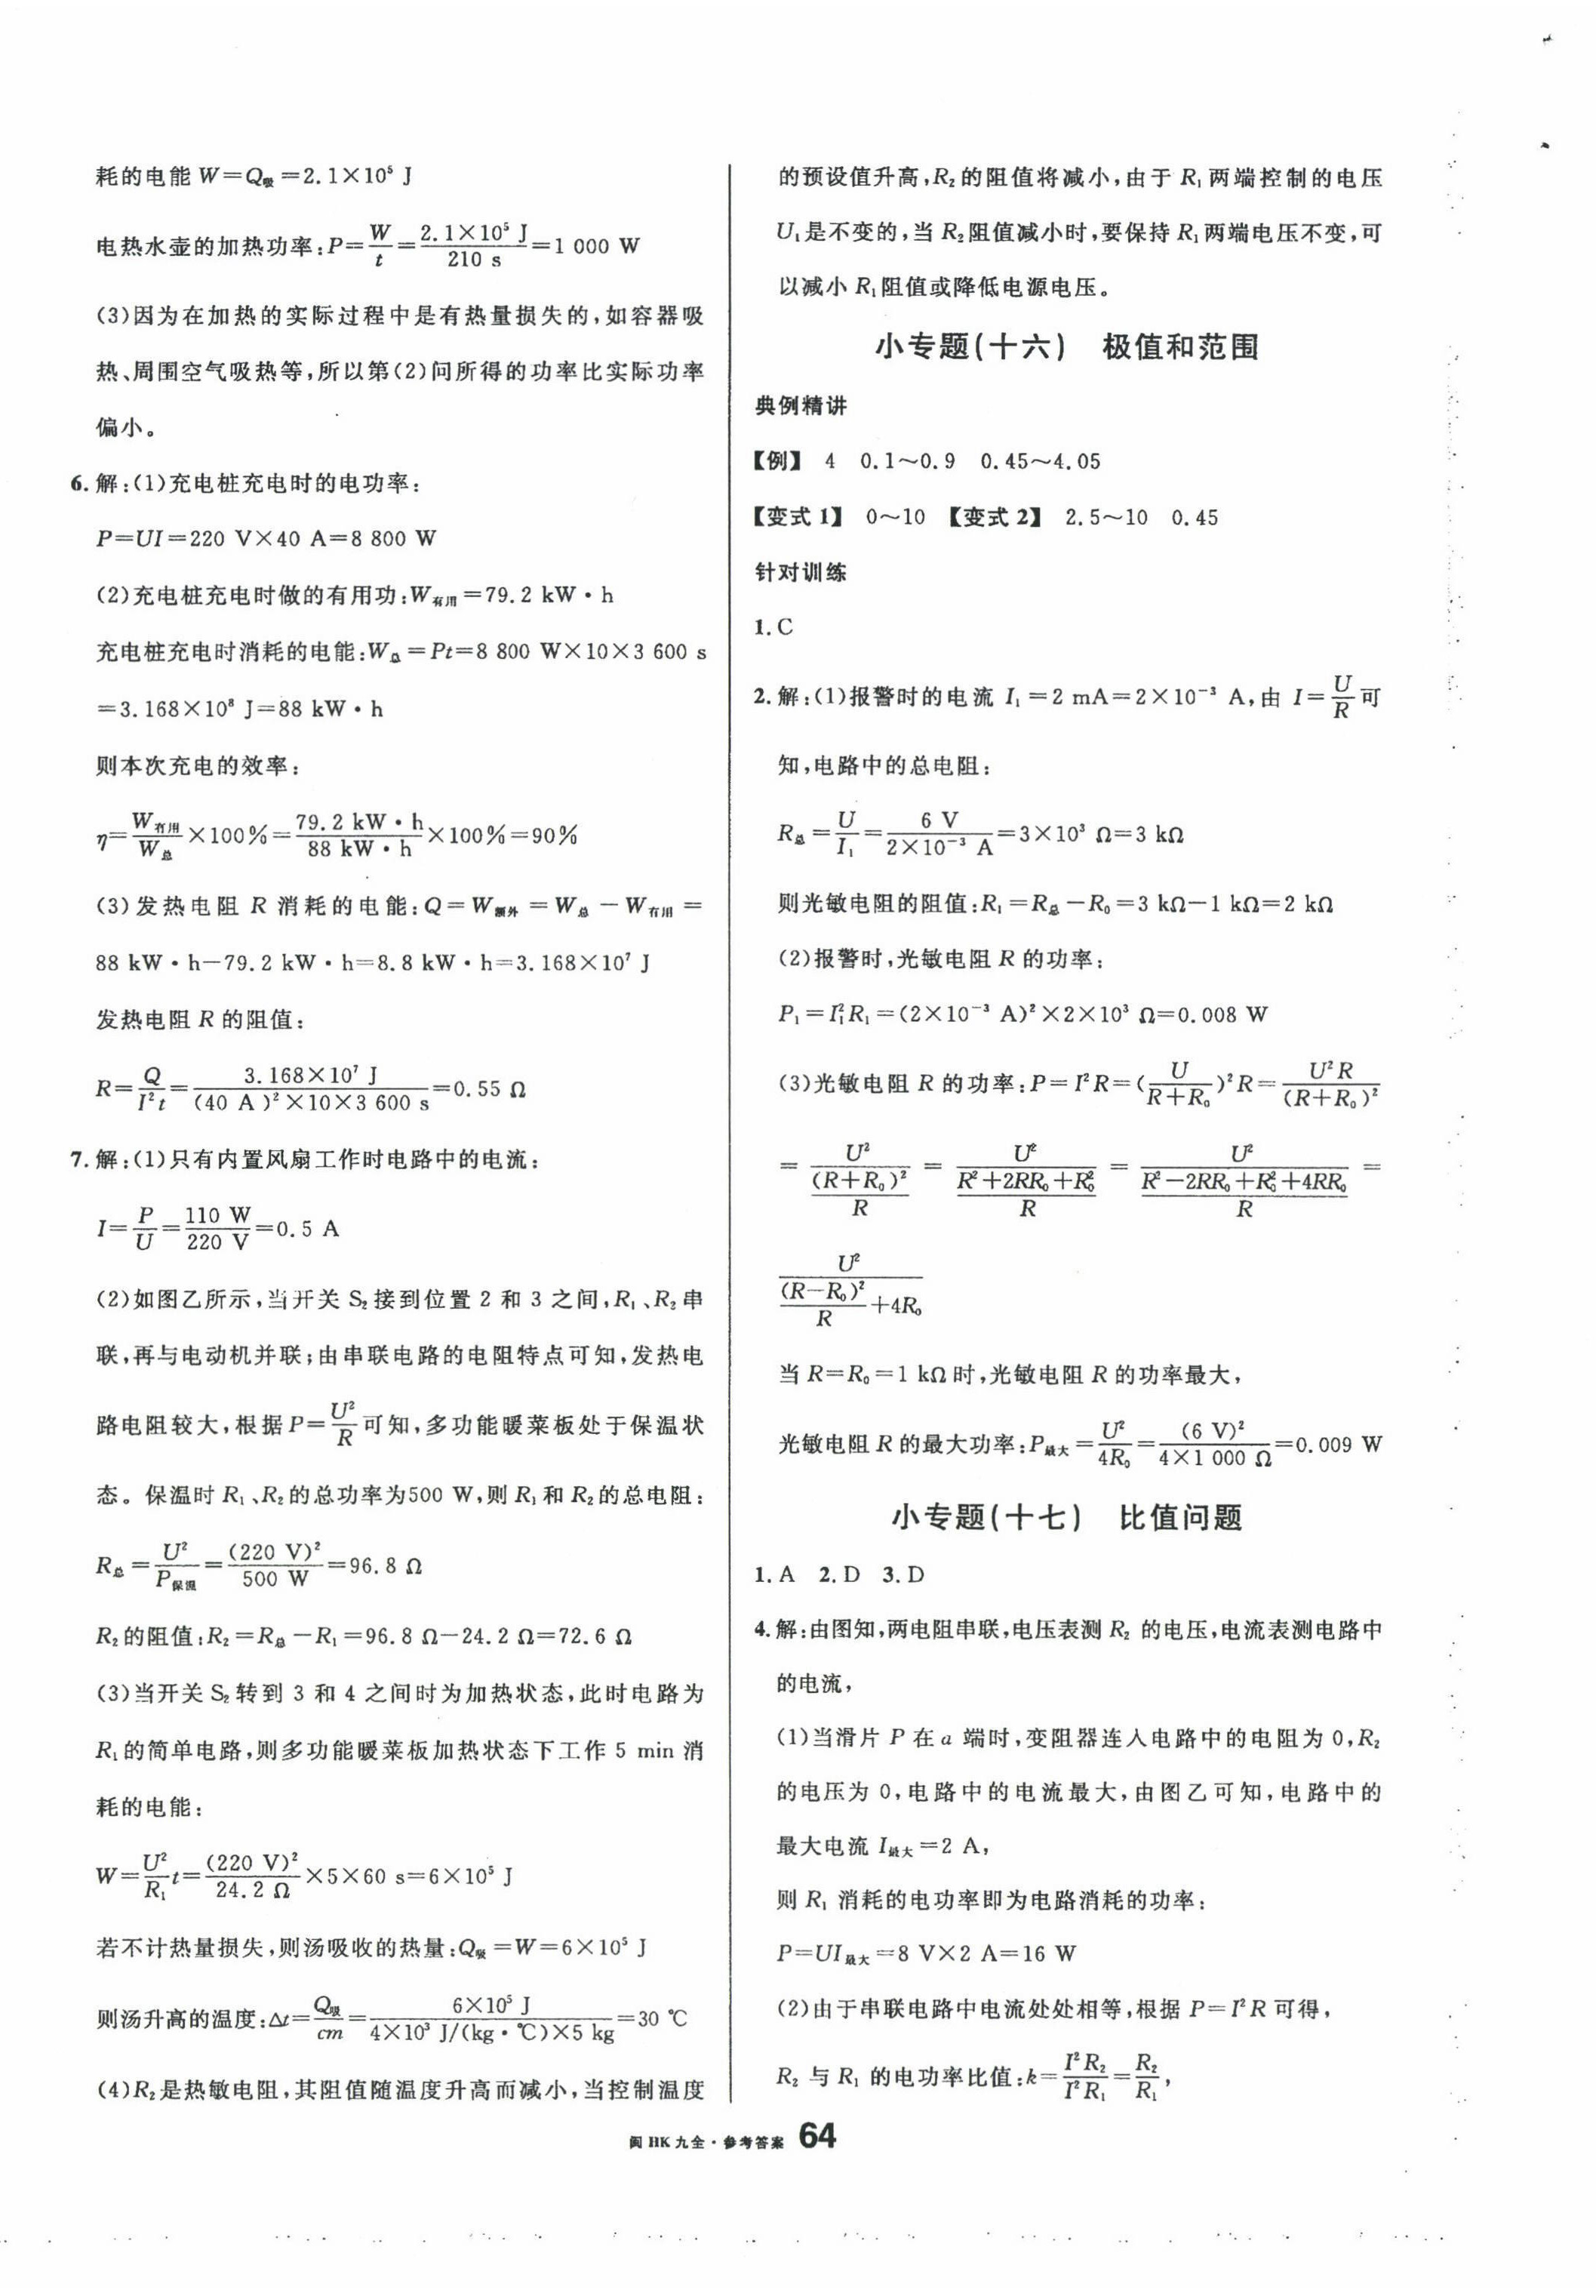 耗的电能 W=Q吸=2.1×10⁵ J
电热水壶的加热功率:P=W/t=2.1×10⁵ J/210 s=1 000 W
(3)因为在加热的实际过程中是有热量损失的,如容器吸
热、周围空气吸热等,所以第(2)问所得的功率比实际功率
偏小。
6.解:(1)充电桩充电时的电功率:
P=UI=220 V×40 A=8 800 W
(2)充电桩充电时做的有用功:W有用=79.2 kW·h
充电桩充电时消耗的电能:W总=Pt=8 800 W×10×3 600 s
=3.168×10⁸ J=88 kW·h
则本次充电的效率:
η=W有用/W总×100%=79.2 kW·h/88 kW·h×100%=90%
(3)发热电阻 R 消耗的电能:Q=W额外=W总-W有用=
88 kW·h-79.2 kW·h=8.8 kW·h=3.168×10⁷ J
发热电阻 R 的阻值:
R=Q/I²t=3.168×10⁷ J/(40 A)²×10×3 600 s=0.55 Ω
7.解:(1)只有内置风扇工作时电路中的电流:
I=P/U=110 W/220 V=0.5 A
(2)如图乙所示,当开关 S₂接到位置 2 和 3 之间,R₁、R₂串
联,再与电动机并联;由串联电路的电阻特点可知,发热电
路电阻较大,根据 P=U²/R可知,多功能暖菜板处于保温状
态。保温时 R₁、R₂的总功率为500 W,则 R₁和 R₂的总电阻:
R总=U²/P保温=(220 V)²/500 W=96.8 Ω
R₂的阻值:R₂=R总-R₁=96.8 Ω-24.2 Ω=72.6 Ω
(3)当开关 S₂转到 3 和 4 之间时为加热状态,此时电路为
R₁的简单电路,则多功能暖菜板加热状态下工作 5 min 消
耗的电能:
W=U²/R₁t=(220 V)²/24.2 Ω×5×60 s=6×10⁵ J
若不计热量损失,则汤吸收的热量:Q吸=W=6×10⁵ J
则汤升高的温度:Δt=Q吸/cm=6×10⁵ J/4×10³ J/(kg·℃)×5 kg=30 ℃
(4)R₂是热敏电阻,其阻值随温度升高而减小,当控制温度
的预设值升高,R₂的阻值将减小,由于 R₁两端控制的电压
U₁是不变的,当 R₂阻值减小时,要保持 R₁两端电压不变,可
以减小 R₁阻值或降低电源电压。
小专题(十六) 极值和范围
典例精讲
【例】 4 0.1~0.9 0.45~4.05
【变式 1】 0~10 【变式 2】 2.5~10 0.45
针对训练
1.C
2.解:(1)报警时的电流 I₁=2 mA=2×10⁻³ A,由 I=U/R可
知,电路中的总电阻:
R总=U/I₁=6 V/2×10⁻³ A=3×10³ Ω=3 kΩ
则光敏电阻的阻值:R₁=R总-R₀=3 kΩ-1 kΩ=2 kΩ
(2)报警时,光敏电阻 R 的功率:
P₁=I₁²R₁=(2×10⁻³ A)²×2×10³ Ω=0.008 W
(3)光敏电阻 R 的功率:P=I²R=(U/R+R₀)²R=U²R/(R+R₀)²
=U²/((R+R₀)²/R)=U²/((R²+2RR₀+R₀²)/R)=U²/((R²-2RR₀+R₀²+4RR₀)/R)=
U²/((R-R₀)²/R+4R₀)
当 R=R₀=1 kΩ时,光敏电阻 R 的功率最大,
光敏电阻 R 的最大功率:P最大=U²/4R₀=(6 V)²/4×1 000 Ω=0.009 W
小专题(十七) 比值问题
1.A 2.D 3.D
4.解:由图知,两电阻串联,电压表测 R₂ 的电压,电流表测电路中
的电流,
(1)当滑片 P 在 a 端时,变阻器连入电路中的电阻为 0,R₂
的电压为 0,电路中的电流最大,由图乙可知,电路中的
最大电流 I最大=2 A,
则 R₁ 消耗的电功率即为电路消耗的功率:
P=UI最大=8 V×2 A=16 W
(2)由于串联电路中电流处处相等,根据 P=I²R 可得,
R₂ 与 R₁ 的电功率比值:k=I²R₂/I²R₁=R₂/R₁,
闽 HK 九全·参考答案 64